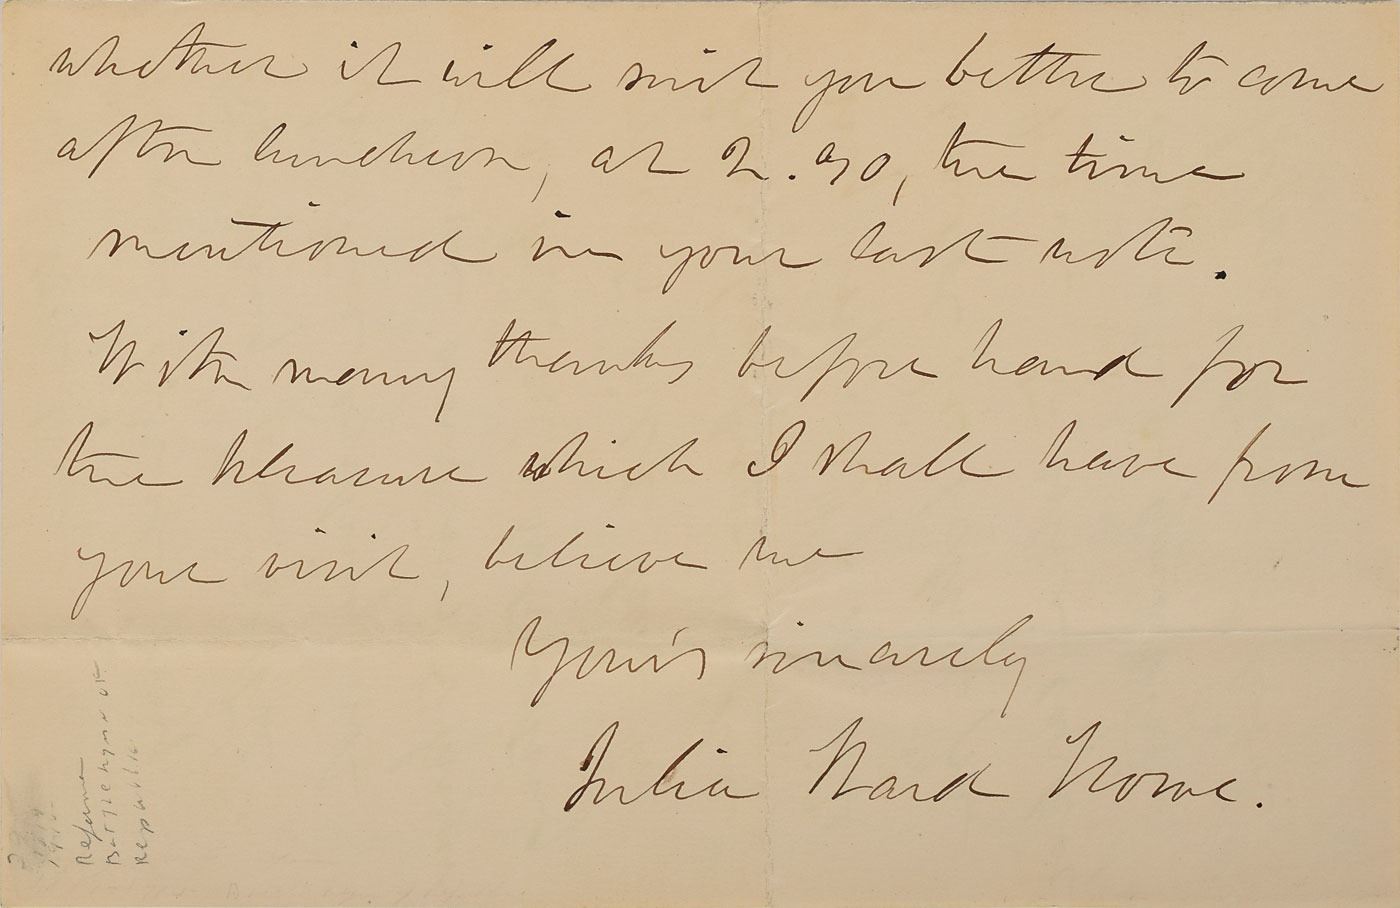 whether it will suit you better to come
after luncheon, at 2.30, the time
mentioned in your last note.
With many thanks before hand for
the pleasure which I shall have from
your visit, believe me
Your's sincerely
Julia Ward Howe.
Battle Hymn of
Republic